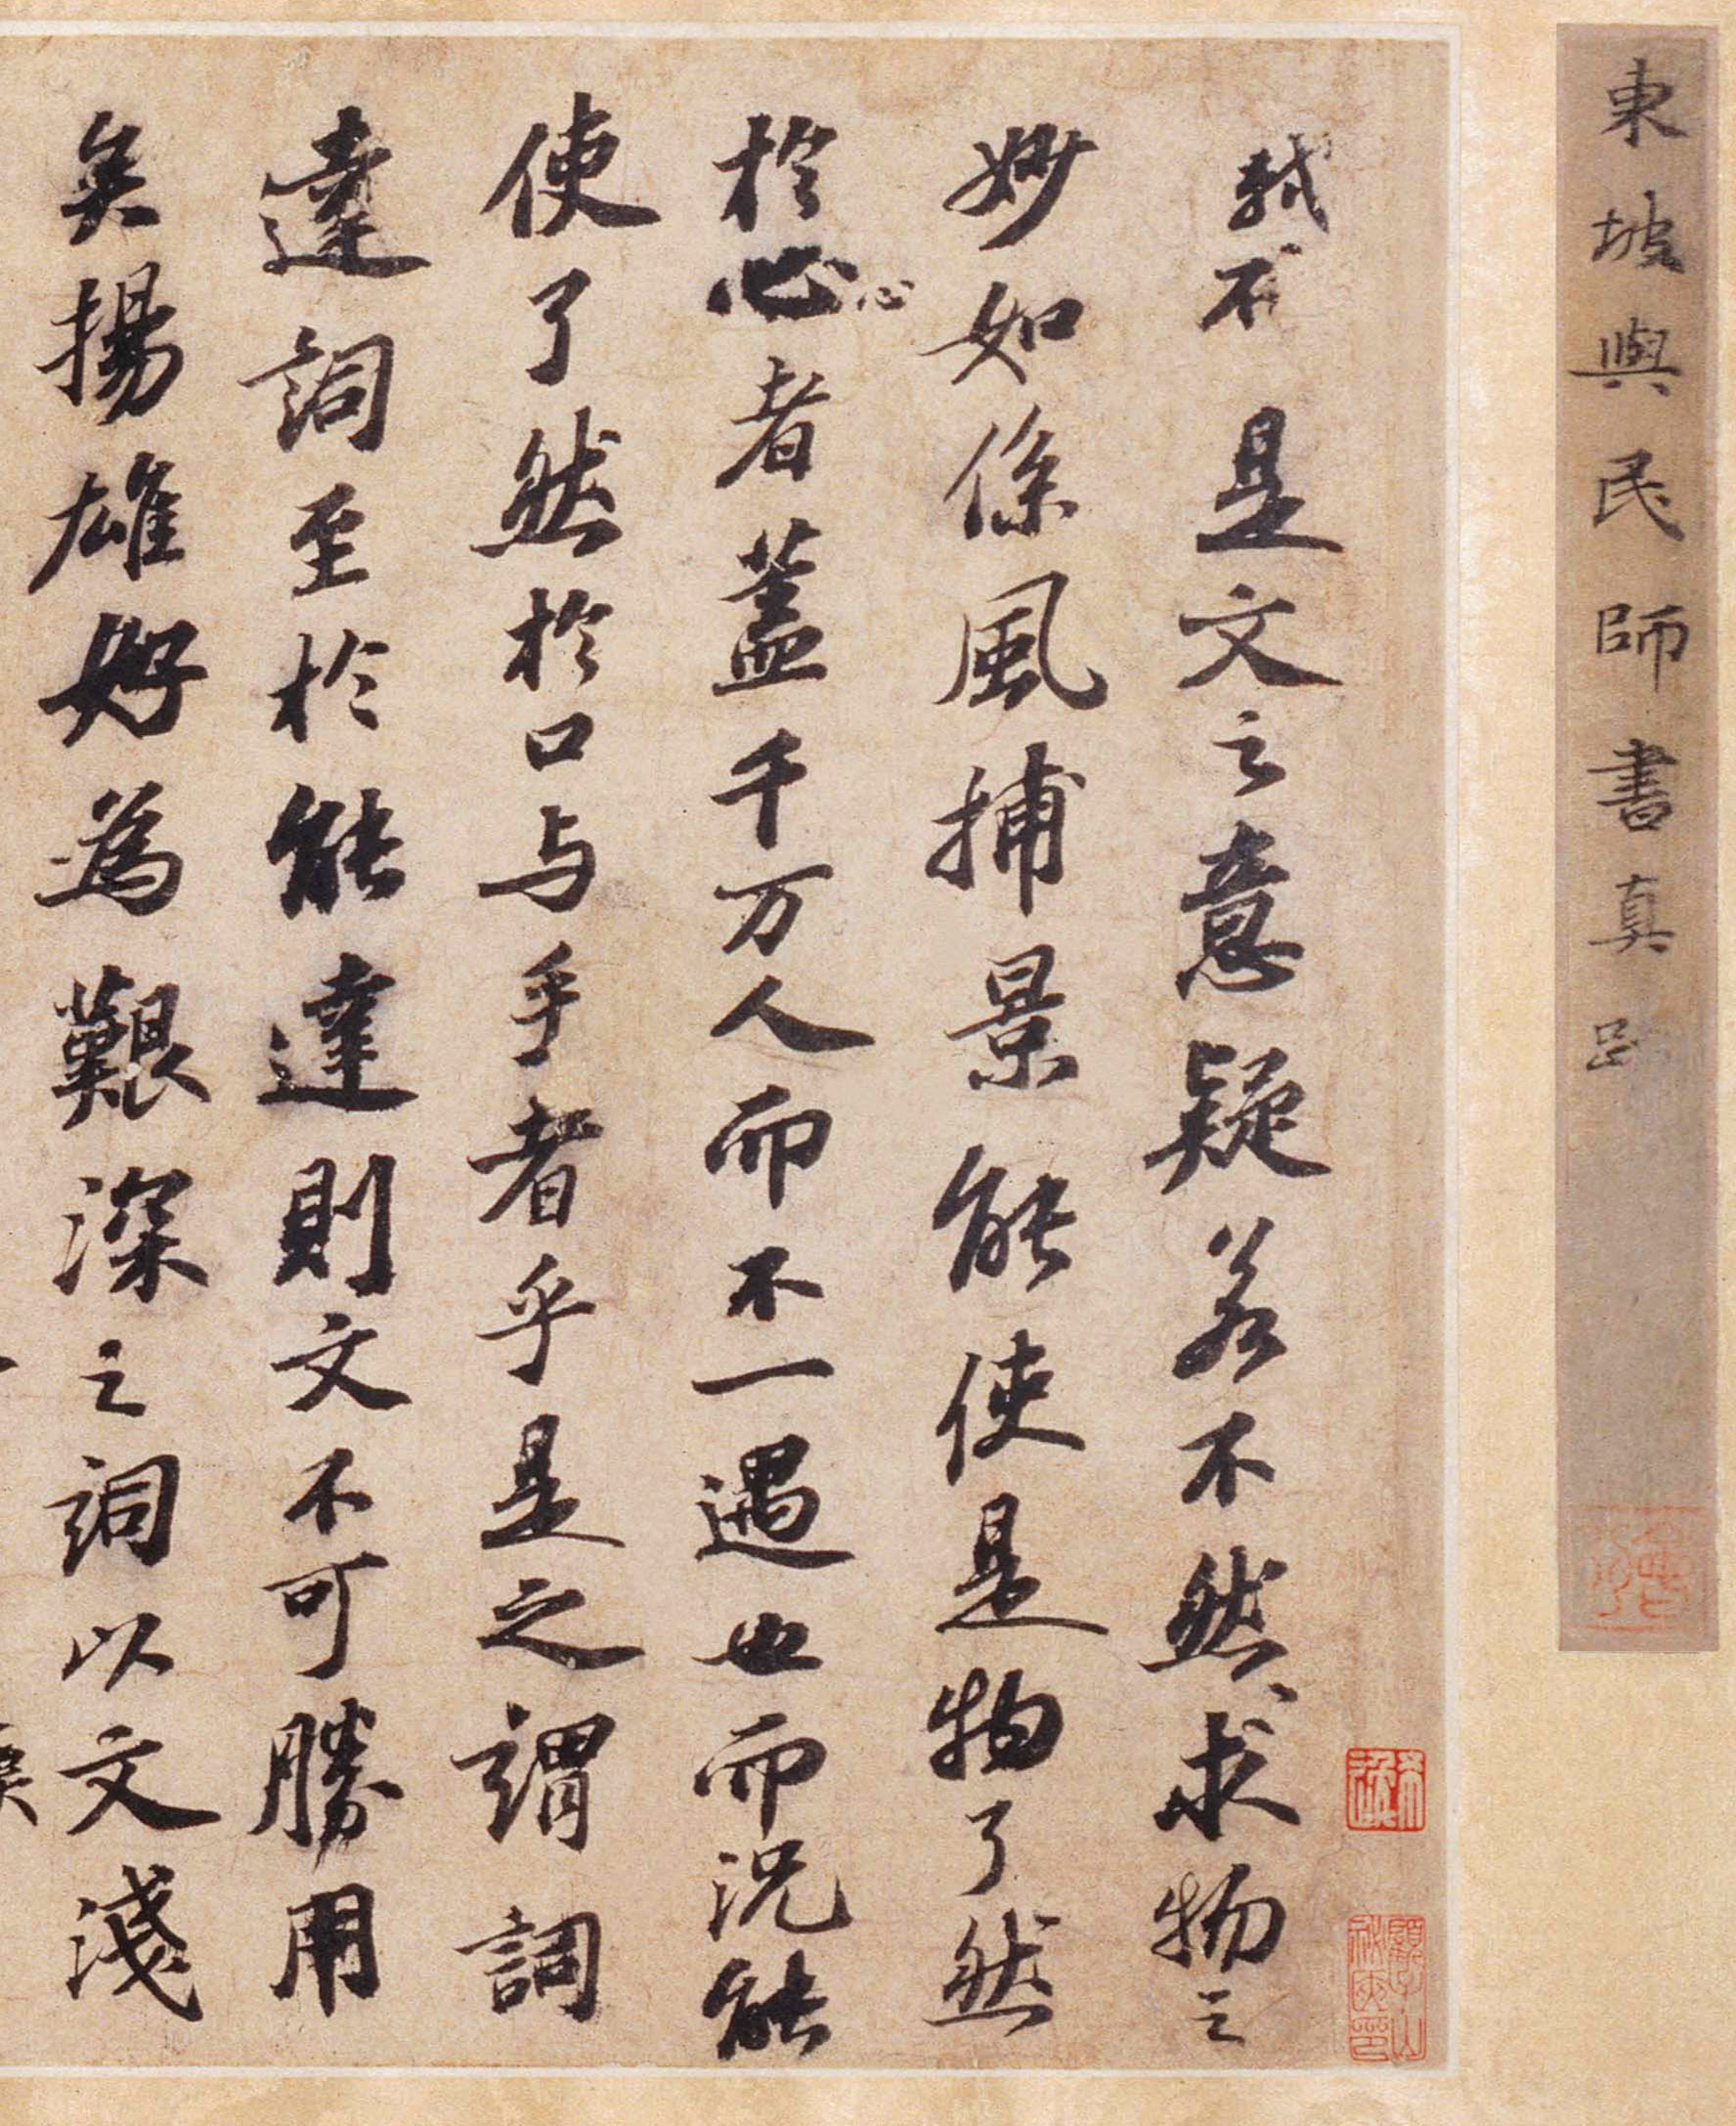 東坡與民師書真跡
軾不是文之意疑若不然求物之
妙如係風捕景能使是物了然
於心心者蓋千万人而不一遇也而況能
使了然於口与手者乎是之謂詞
達詞至於能達則文不可勝用
矣揚雄好為艱深之詞以文淺